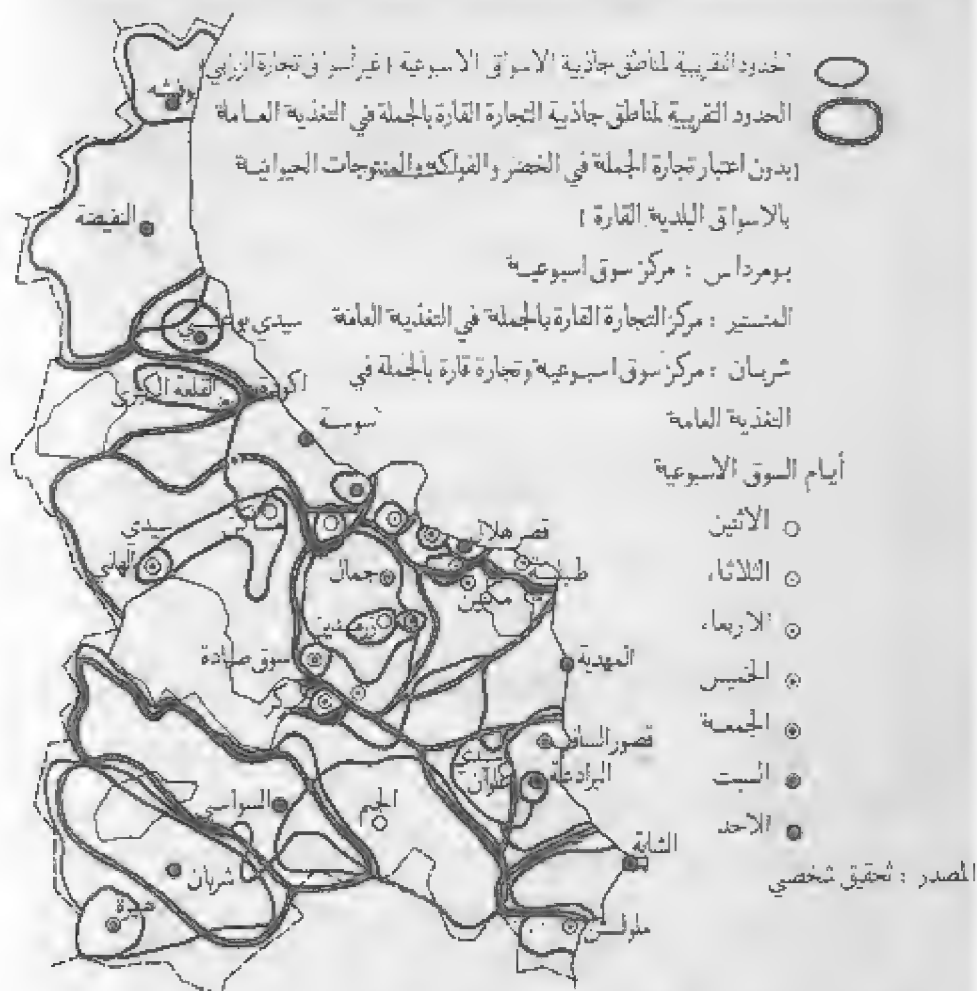 الحدود التقريبية لمناطق جاذبية الاسواق الاسبوعية (غير أسواق تجارة الزرابي)
الحدود التقريبية لمناطق جاذبية التجارة القارة بالجملة في التغذية العامة
(بدون اعتبار تجارة الجملة في الخضر والفواكه والمنتوجات الحيوانية
بالاسواق البلدية القارة)
بومرداس : مركز سوق اسبوعية
المنستير : مركز التجارة القارة بالجملة في التغذية العامة
شربان : مركز سوق اسبوعية وتجارة قارة بالجملة في
التغذية العامة
أيام السوق الاسبوعية
الاثنين
الثلاثاء
الاربعاء
الخميس
الجمعة
السبت
الاحد
المصدر : تحقيق شخصي
بوفيشه
النفيضة
سيدي بوعلي
اكودة
القلعة الكبرى
سوسة
سيدي
الهاني
قصر هلال
طبلبة
جمال
زرمدين
سوق صيادة
المهدية
قصور الساف
سيدي
علوان
البرادعة
السواسي
الجم
الشابة
شربان
هبيرة
ملولش